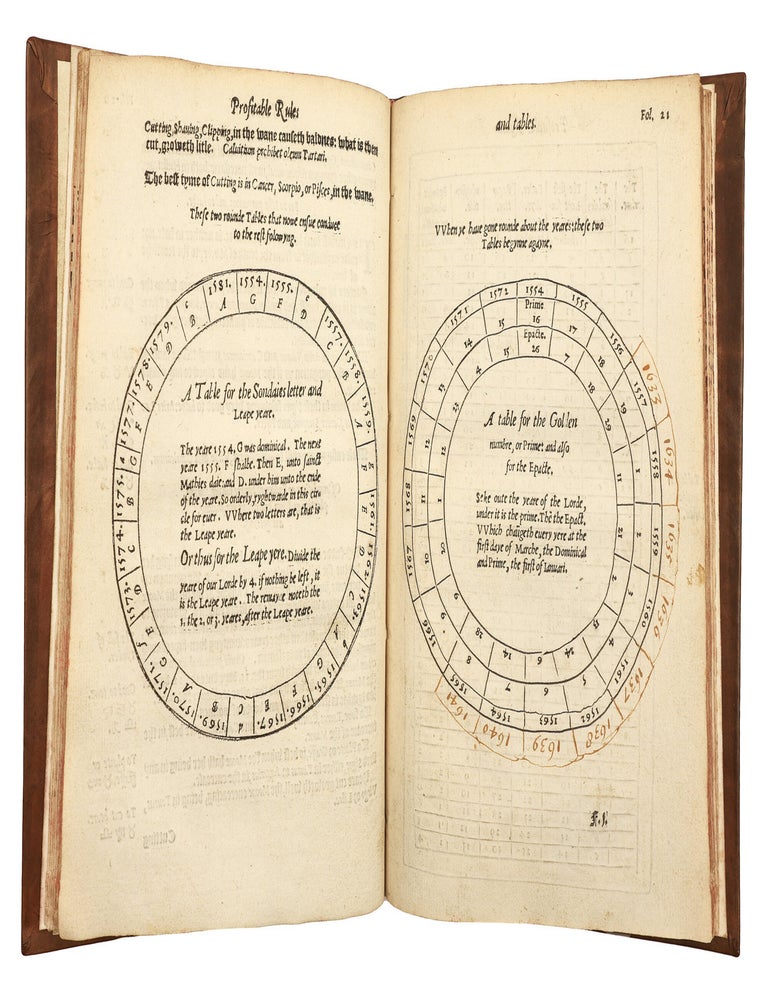 Profitable Rules
Cutting, Shauing, Clipping, in the wane causeth baldnes: what is then
cut, groweth litle. Caluitium prohibet oleum Tartari.
The best tyme of Cutting is in Cancer, Scorpio, or Pisces, in the wane.
These two rounde Tables that nowe ensue conduce
to the rest folowyng.
1554. 1555. 1557. 1558. 1559. 1561. 1562. 1563. 1565. 1566. 1567. 1569. 1570. 1571. 1573. 1574. 1575. 1577. 1578. 1579. 1581.
G F D C B A F E D C A G F E C B A G E D C B G F E D B A
A Table for the Sondaies letter and
Leape yeare.
The yeare 1554, G was dominical. The next
yeare 1555. F shalbe. Then E, unto sainct
Mathies date: and D. under him unto the ende
of the yeare. So orderly, ryghtwarde in this cir
cle for euer. VVhere two letters are, that is
the Leape yeare.
Or thus for the Leape yere. Diuide the
yeare of our Lorde by 4. if nothing be left, it
is the Leape yeare. The remayne noteth the
1, the 2, or 3. yeares, after the Leape yeare.
Cutting
and tables.
Fol. 21
VVhen ye haue gone rounde about the yeares: these two
Tables begynne agayne.
1554 1555 1556 1557 1558 1559 1560 1561 1562 1563 1564 1565 1566 1567 1568 1569 1570 1571 1572
Prime
16 17 18 19 1 2 3 4 5 6 7 8 9 10 11 12 13 14 15
Epacte.
26 7 18
A table for the Golden
numbre, or Prime: and also
for the Epacte.
Seke oute the yeare of the Lorde,
under it is the prime. Thē the Epact.
VVhich chāgeth every yere at the
first daye of Marche, the Dominical
and Prime, the first of Ianuari.
1633 1634 1635 1636 1637 1638 1639 1640 1641